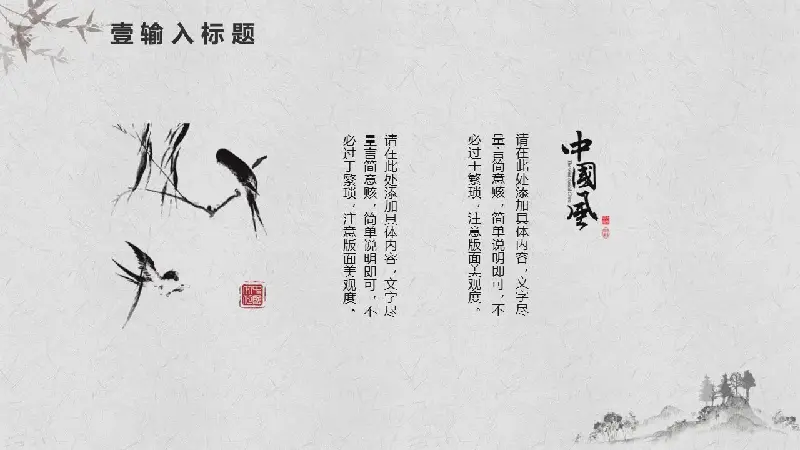 壹输入标题
中国风
请在此处添加具体内容，文字尽
量言简意赅，简单说明即可，不
必过于繁琐，注意版面美观度。
请在此处添加具体内容，文字尽
量言简意赅，简单说明即可，不
必过于繁琐，注意版面美观度。